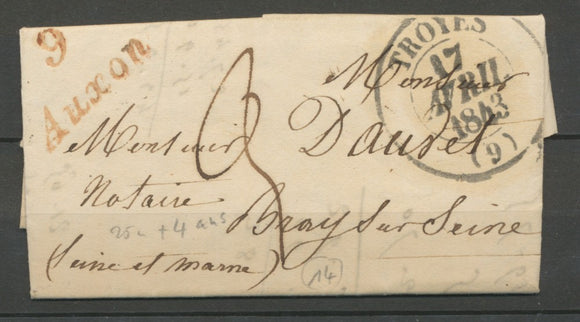 9
Auxon
TROYES
17
AVRIL
1843
(9)
Monsieur
Monsieur Daudet
Notaire
Bray sur Seine
(Seine et Marne)
25c +4 ans
14
3